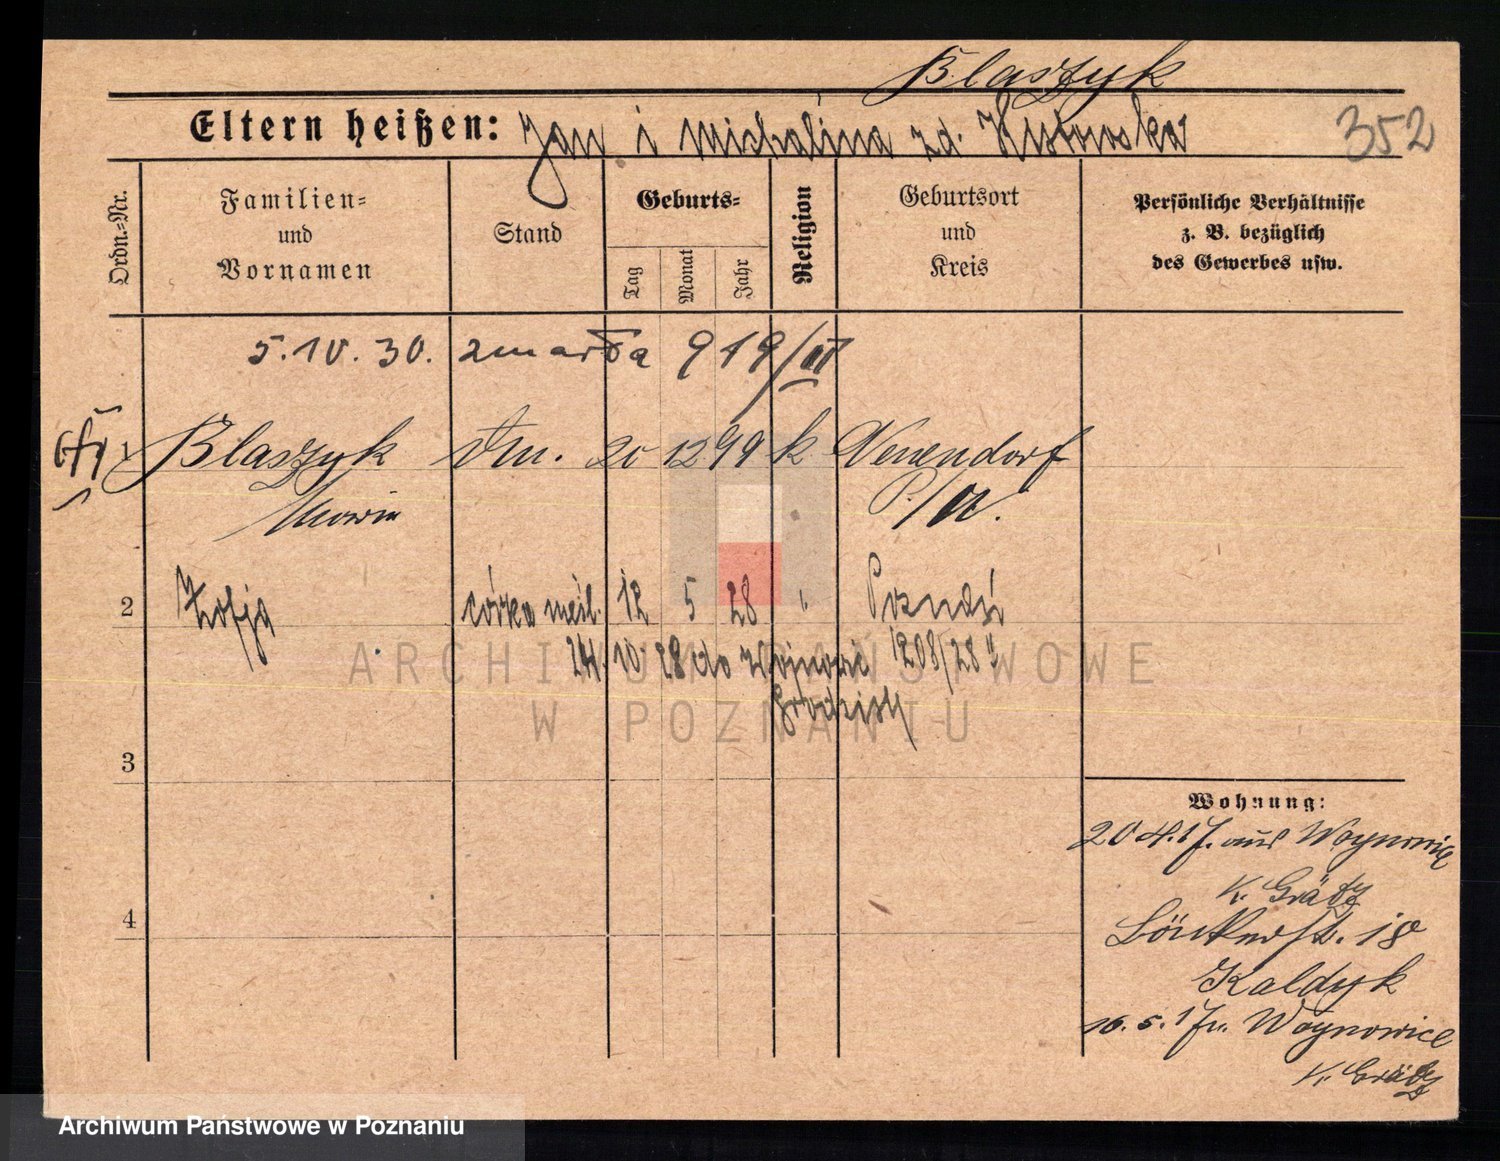 Blaszyk
Eltern heißen: Jan i Michalina zd.
352
Ordn.=Nr.
Familien=
und
Vornamen
Stand
Geburts=
Tag
Monat
Jahr
Religion
Geburtsort
und
Kreis
Persönliche Verhältnisse
z. B. bezüglich
des Gewerbes usw.
5. IV. 30. zmarła 919/III
1 Blaszyk Dm. 20 12 99 k Neuendorf
2 Zofja córka nieśl. 12 5 28 " Poznań
24. 10. 28 do Wojnowic 1208/28 II
Grodzisk
3
4
Wohnung:
20 4.17. aus Woynowice
K. Grätz
18
Kaldyk
16. 5. 17 n. Woynowice
K. Grätz
ARCHIWUM PAŃSTWOWE
W POZNANIU
Archiwum Państwowe w Poznaniu